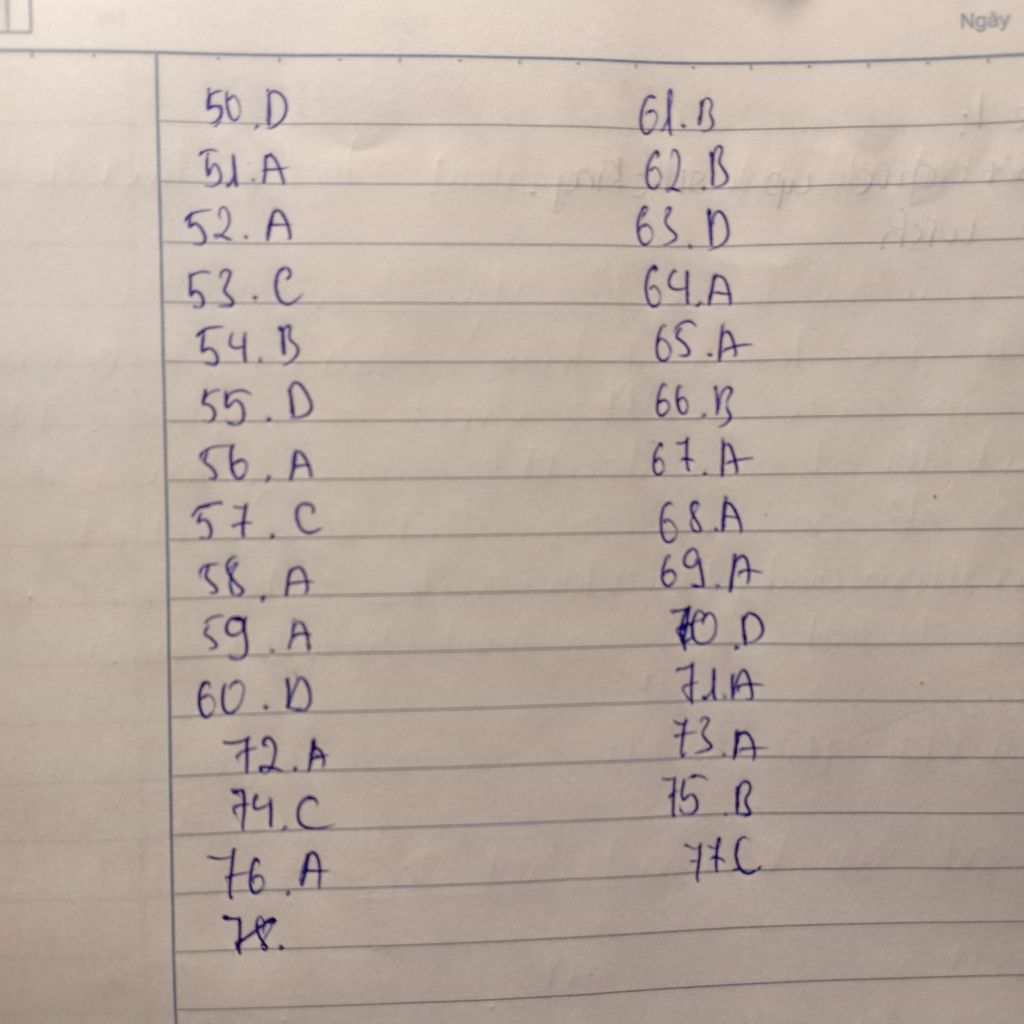 Ngày
50.D
51.A
52.A
53.C
54.B
55.D
56.A
57.C
58.A
59.A
60.D
72.A
74.C
76.A
78.
61.B
62.B
63.D
64.A
65.A
66.B
67.A
68.A
69.A
70.D
71.A
73.A
75 B
77C